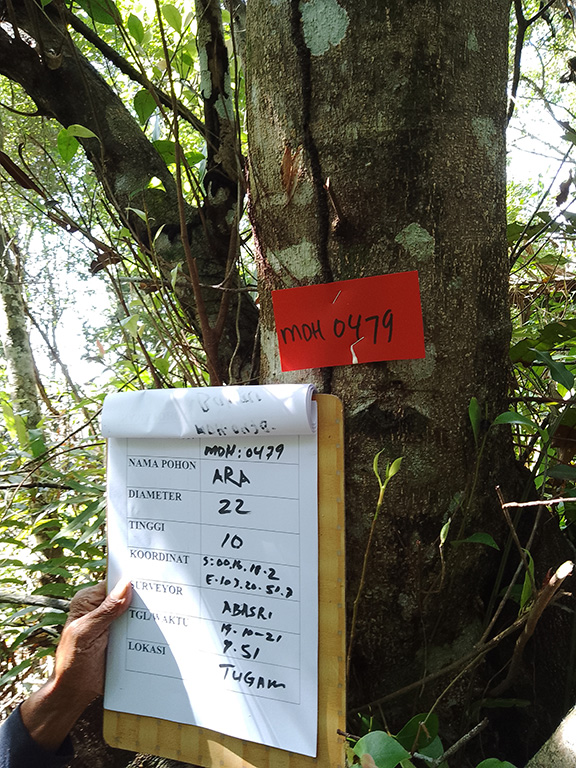 MDH 0479
MDH : 0479
NAMA POHON ARA
DIAMETER 22
TINGGI 10
KOORDINAT S : 00.16.18.2
E.103.20.51.7
SURVEYOR ABASRI
TGL/WAKTU 19-10-21
9.51
LOKASI TUGAM